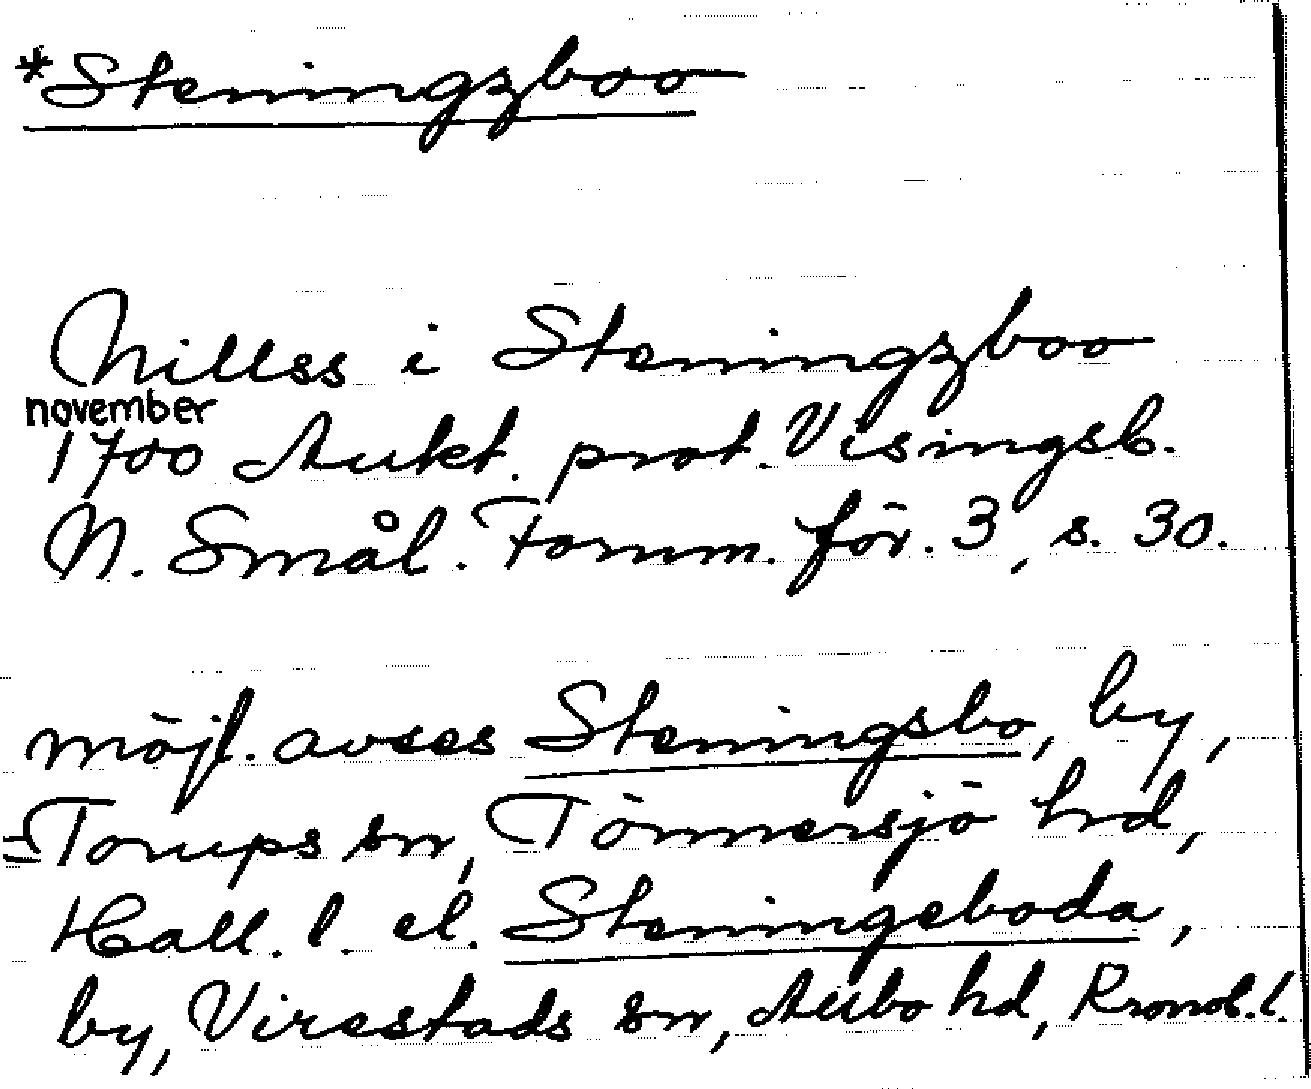 *Steningzboo
Nillss i Steningzboo
november
1700 Aukt. prot. Visingsb.
N. Smål. Fornm. för. 3, s. 30.
möjl. avses Steningsbo, by,
Torups sn, Tönnersjö hd,
Hall. l. el. Steningeboda,
by, Virestads sn, Allbo hd, Kronob. l.